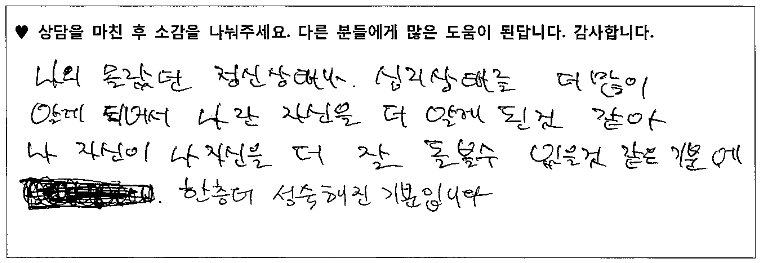 ♥ 상담을 마친 후 소감을 나눠주세요. 다른 분들에게 많은 도움이 된답니다. 감사합니다.
나의 몰랐던 정신상태나. 심리상태를 더 많이
알게 되어서 나란 자신을 더 알게 된것 같아
나 자신이 나 자신을 더 잘 돌볼수 있을것 같은 기분에
. 한층더 성숙해진 기분입니다